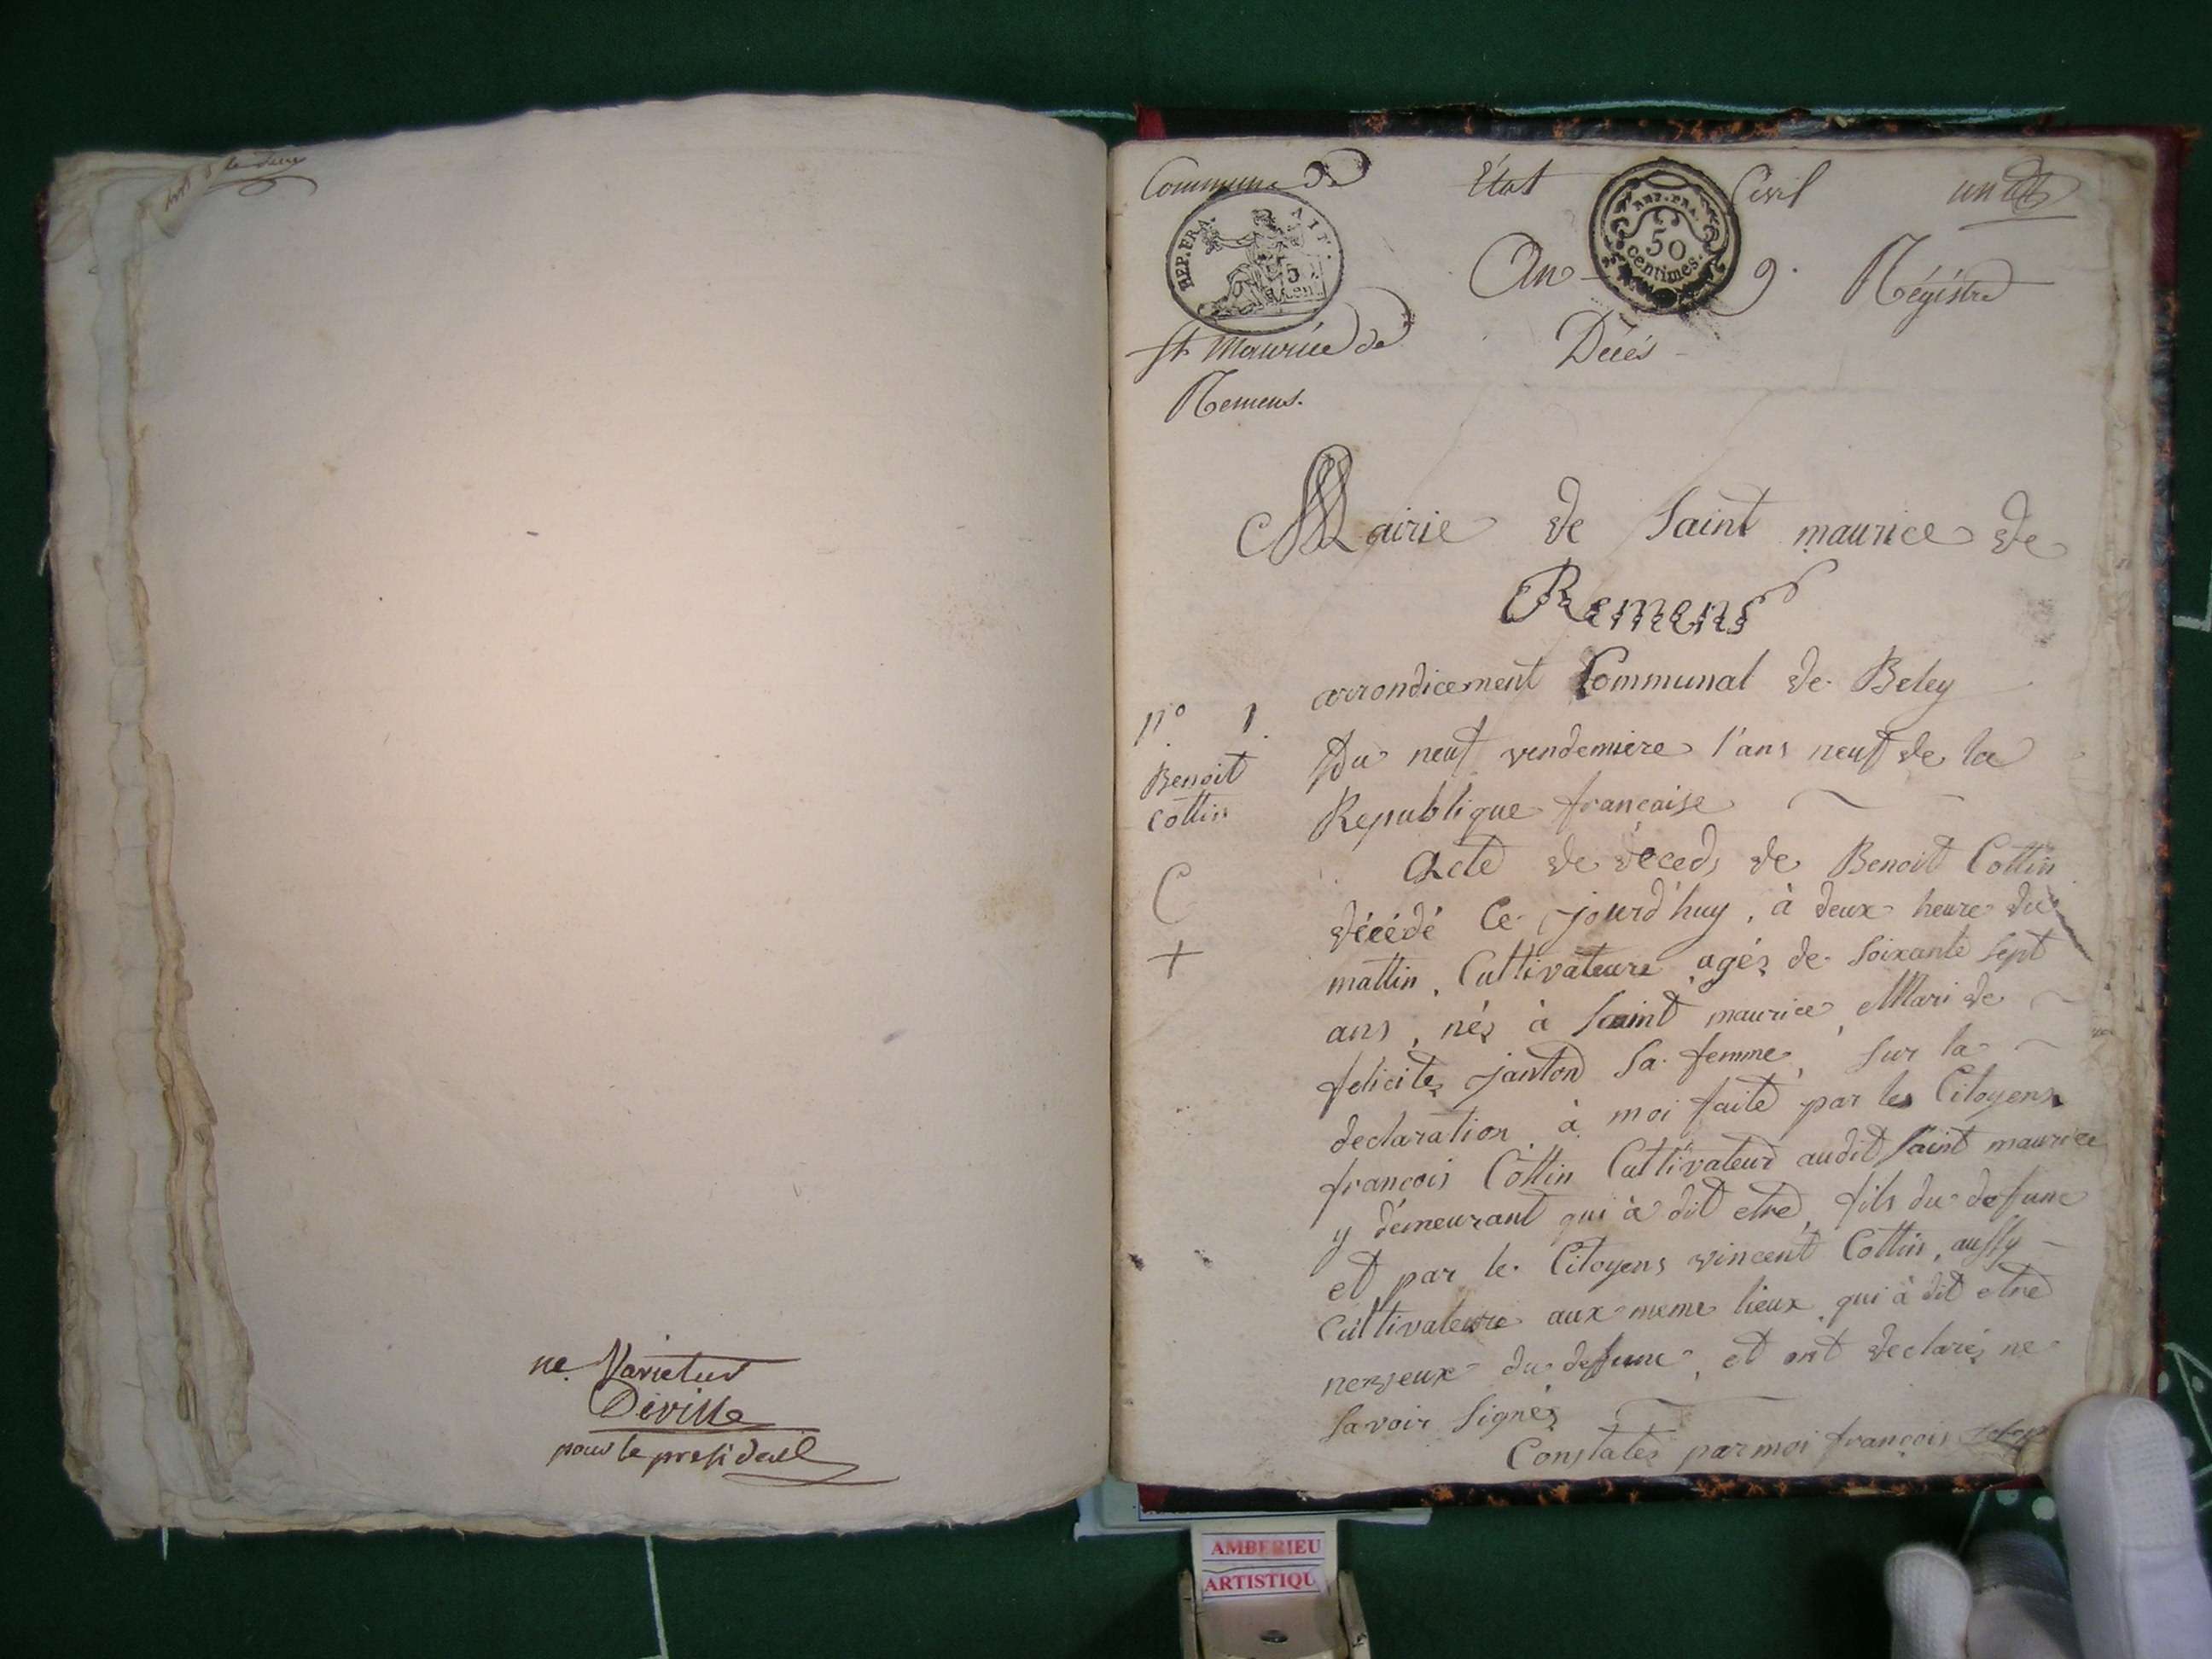 ne Varietur
Deville
pour le president
Commune de
État
Civil
REP. FRA.
50
centimes.
REP. FRA.
An 9.
Régistre
St Maurice de
Décés
Remens.
Mairie de Saint maurice de
Remens
arrondicement Communal de Beley
n° 1
Du neuf vendemiere l'ans neuf de la
Benoit
Republique française
Cottin
Acte de déceds de Benoit Cottin
C
décédé Ce jourd'huy, à deux heure du
+
mattin, Cultivateure agéz de Soixante Sept
ans, néz à Saint maurice, Mari de
felicitez janton Sa femme, Sur la
declaration à moi faite par les Citoyens
francois Cottin Cultivateur audit Saint maurice
y démeurant qui à dit etre, fils du deffunc
et par le Citoyens vincent Cottin, aussy
Cultivateure aux meme lieux qui à dit etre
neveux du deffunc, et ont declaréz ne
savoir Signéz
Constatez par moi françois
AMBERIEU
ARTISTIQU